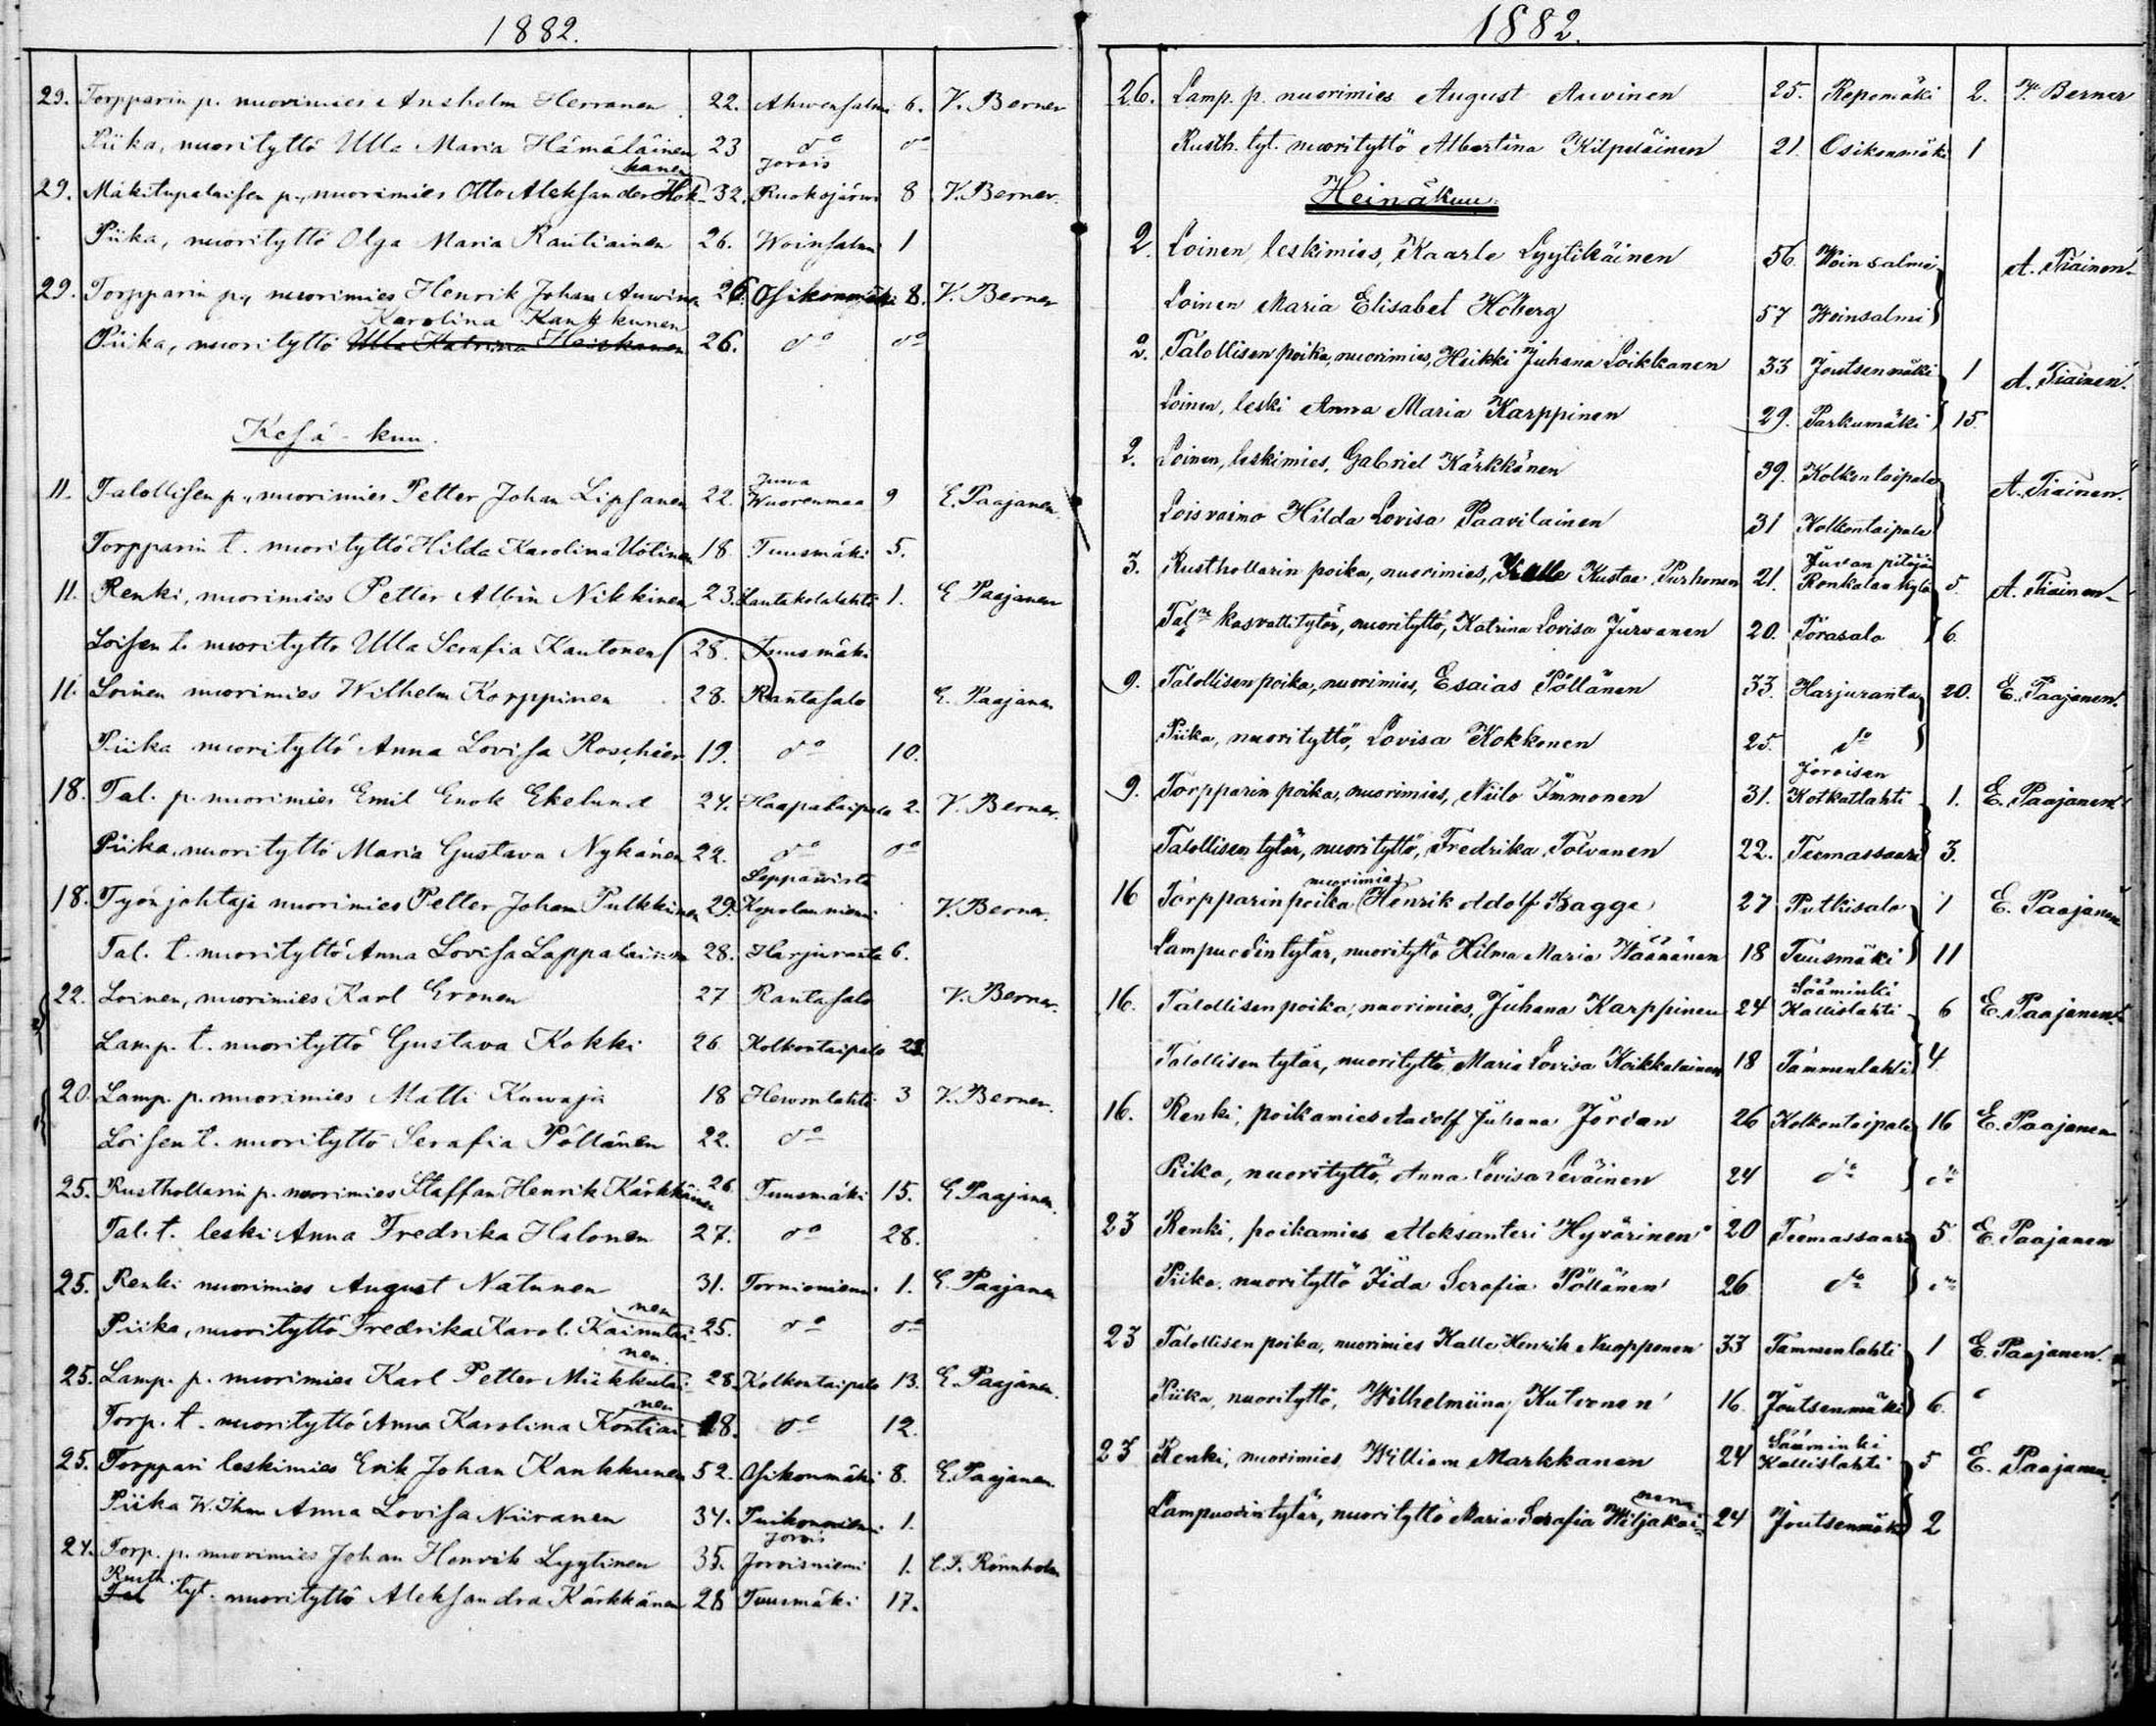 1882.
29. Torpparin p. nuorimies Anshelm Herranen 22. Ahvensalmi 6. V. Berner
Piika, nuorityttö Ulla Maria Hämäläinen 23 do do
29. Mäkitupalaisen p., nuorimies Otto Aleksander Hok-kanen 32. Jorois Ruokojärvi 8 V. Berner.
Piika, nuorityttö Olga Maria Rautiainen 26. Woinsalmi 1
29. Torpparin p., nuorimies Henrik Johan Auwinen 26. Osikonmäki 8. V. Berner
Karolina Kankkunen
Piika, nuorityttö Ulla Katrina Heiskanen 26. do do
Kesä-kuu.
11. Talollisen p., nuorimies Petter Johan Lipsanen 22. Juwa Wuorenmaa 9 E. Paajanen.
Torpparin t. nuorityttö Hilda Karolina Uotinen 18. Tuusmäki 5.
11. Renki, nuorimies Petter Albin Nikkinen 23. Lautakolalahti 1. E. Paajanen
Loisen t. nuorityttö Ulla Serafia Kautonen 28. Tuusmäki
11. Loinen nuorimies Wilhelm Korppinen 28. Rantasalo E. Paajanen
Piika nuorityttö Anna Lovisa Roschier 19. do 10.
18. Tal. p. nuorimies Emil Enok Ekelund 24. Haapataipale 2. V. Berner.
Piika, nuorityttö Maria Gustava Nykänen 22. do do
18. Työnjohtaja nuorimies Petter Johan Pulkkinen 29. Leppäwirta Kopolanniemi V. Berner.
Tal. t. nuorityttö Anna Lovisa Lappalainen 28. Harjuranta 6.
22. Loinen, nuorimies Karl Eronen 27 Rantasalo V. Berner.
Lamp. t. nuorityttö Gustava Kokki 26 Kolkontaipale 23.
20. Lamp. p. nuorimies Matti Kuwaja 18 Hewonlahti 3 V. Berner.
Loisen t. nuorityttö Serafia Pöllänen 22. do
25. Rusthollarin p. nuorimies Staffan Henrik Kärkkäinen 26 Tuusmäki 15. E. Paajanen.
Tal. t. leski Anna Fredrika Halonen 27. do 28.
25. Renki nuorimies August Natunen 31. Tornioniemi 1. E. Paajanen
Piika, nuorityttö Fredrika Karol. Kainulai-nen 25. do do
25. Lamp. p. nuorimies Karl Petter Miikkulai-nen. 28. Kolkontaipale 13. E. Paajanen.
Torp. t. nuorityttö Anna Karolina Kontiai-nen 18. do 12.
25. Torppari leskimies Erik Johan Kankkunen 52. Osikonmäki 8. E. Paajanen.
Piika W. Ihm Anna Lovisa Niiranen 34. Tuikonniemi 1.
24. Torp. p. nuorimies Johan Henrik Lyytinen 35. Jorois Joroisniemi 1. C. F. Rönnholm
Rusth.
Tal tyt. nuorityttö Aleksandra Kärkkänen 28 Tuusmäki 17.
1882.
26. Lamp. p. nuorimies August Auvinen 25. Repomäki 2. V. Berner
Rusth. tyt. nuorityttö Albertina Kilpeläinen 21. Osikonmäki 1
Heinäkuu.
2. Loinen, leskimies, Kaarle Lyytikäinen 56. Woinsalmi A. Tiainen.
Loinen Maria Elisabet Hoberg 57 Woinsalmi
2. Talollisen poika, nuorimies, Heikki Juhana Loikkanen 33 Joutsenmäki 1 A. Tiainen.
Loinen, leski Anna Maria Karppinen 29. Parkumäki 15.
2. Loinen, leskimies, Gabriel Kärkkänen 39. Kolkontaipale A. Tiainen.
Loisvaimo Hilda Lovisa Paavilainen 31 Kolkontaipale
3. Rusthollarin poika, nuorimies, Kalle Kustaa Purhonen 21. Juvan pitäjä Ronkalan kylä 5. A. Tiainen
Tal:n kasvattitytär, nuorityttö, Katrina Lovisa Jurvanen 20. Porosalo 6.
9. Talollisen poika, nuorimies, Esaias Pöllänen 33. Harjuranta 20. E. Paajanen.
Piika, nuorityttö, Lovisa Kokkonen 25. do
9. Torpparin poika, nuorimies, Niilo Immonen 31. Joroisen Kotkatlahti 1. E. Paajanen
Talollisen tytär, nuorityttö, Fredrika Tolvanen 22. Tiemassaari 3.
16 Torpparin poika nuorimies Henrik Adolf Bagge 27 Putkisalo 1 E. Paajanen
Lampuodin tytär, nuorityttö Hilma Maria Häänänen 18 Tuusmäki 11
16. Talollisen poika, nuorimies, Juhana Karppinen 24 Sääminki Kallislahti 6 E. Paajanen.
Talollisen tytär, nuorityttö Maria Lovisa Koikkalainen 18 Tammenlahti 4
16. Renki, poikamies Aadolf Juhana Jordan 26 Kolkontaipale 16 E. Paajanen
Piika, nuorityttö, Anna Lovisa Leväinen 24 do do
23 Renki, poikamies Aleksanteri Hyvärinen 20 Tiemassaari 5. E. Paajanen
Piika, nuorityttö Iida Serafia Pöllänen 26 do do
23 Talollisen poika, nuorimies Kalle Henrik Nuopponen 33 Tammenlahti 1 E. Paajanen.
Piika, nuorityttö, Wilhelmiina Kutvonen 16. Joutsenmäki 6.
23 Renki, nuorimies William Markkanen 24 Sääminki Kallislahti 5 E. Paajanen.
Lampuodin tytär, nuorityttö Maria Serafia Wiljakai-nen 24 Joutsenmäki 2